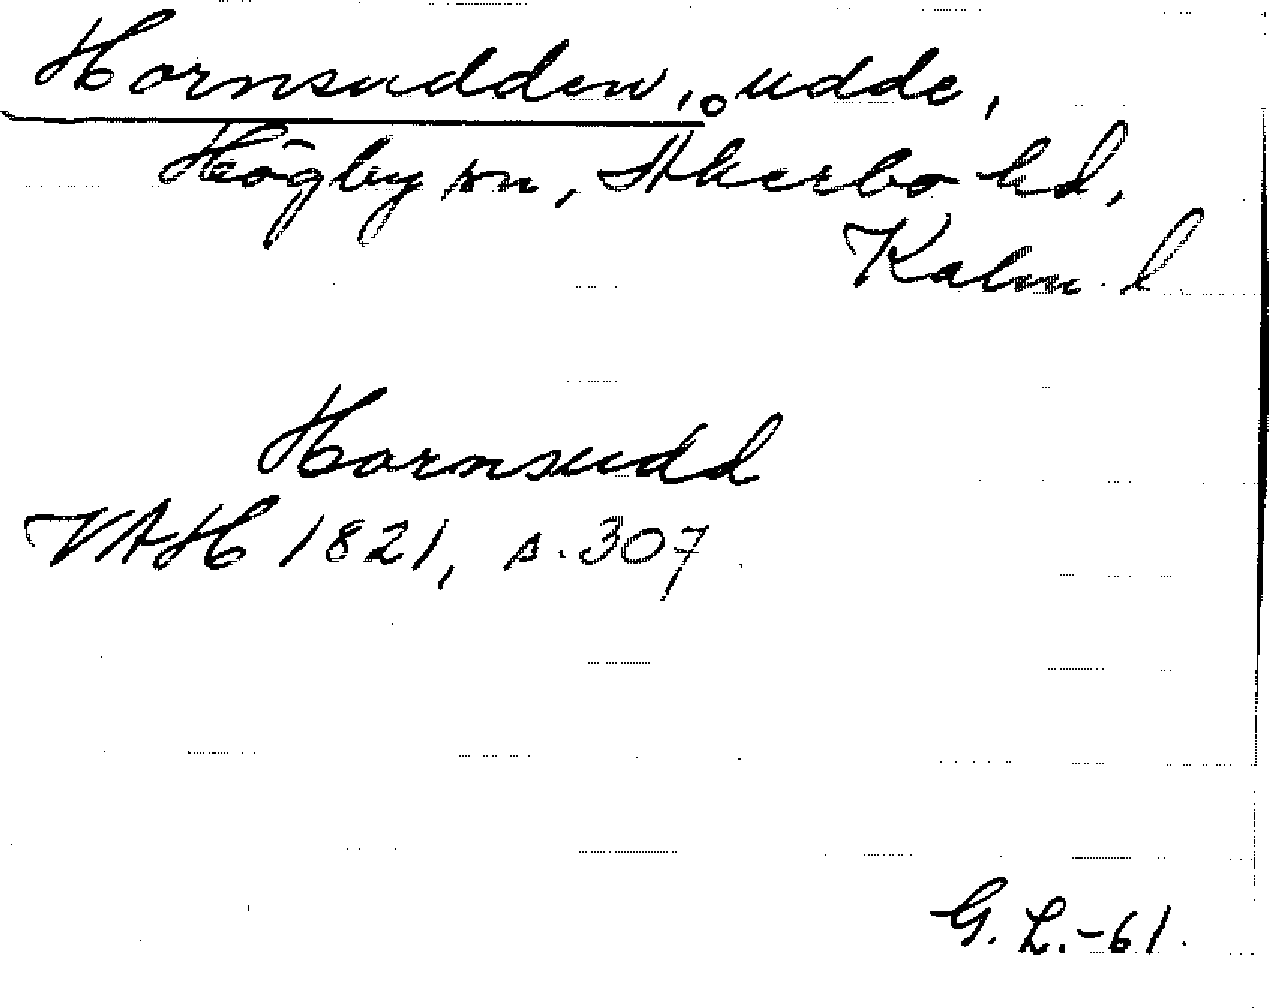 Hornsudden, udde,
Högby sn, Åkerbo hd,
Kalm. l.
Hornsudd
VAH 1821, s. 307
G. L. -61.